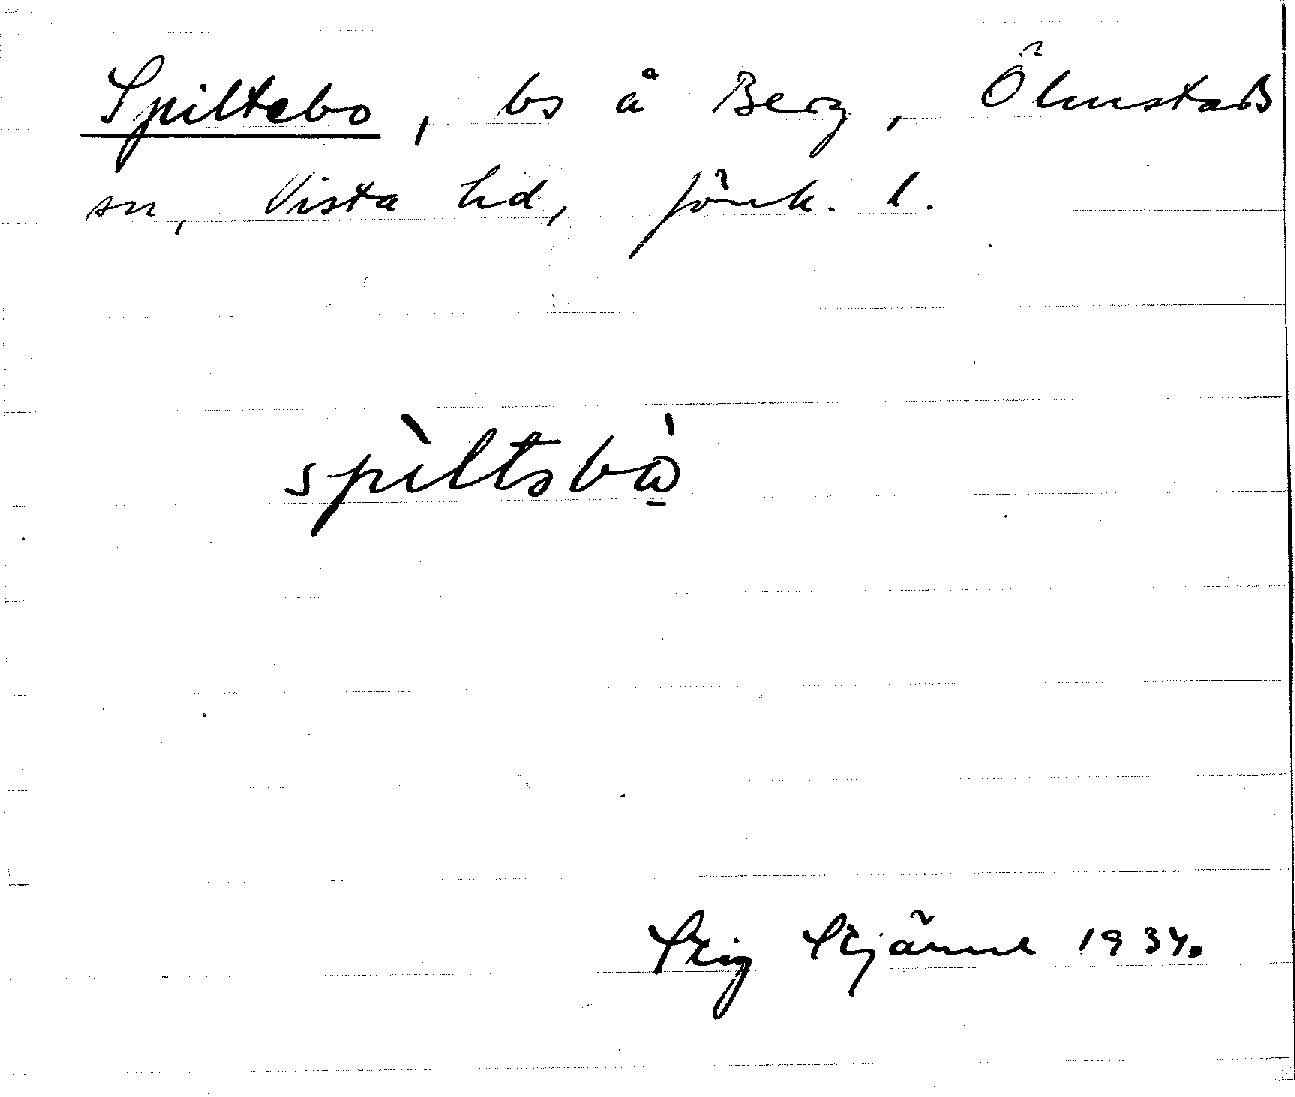 Spiltebo, bs å Berg, Ölmstads
sn, Vista hd, Jönk. l.
spìltsbò̱
Stig Stjärne 1934.